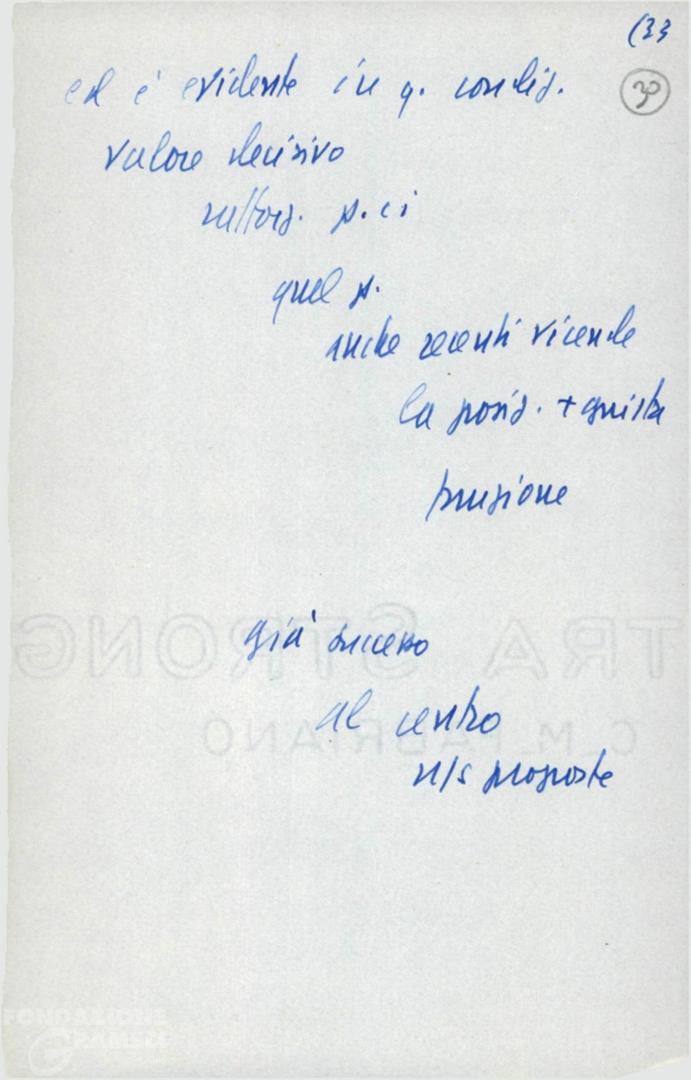 (33
30
ed è evidente in q. condiz.
valore decisivo
rafforz. p.ci
quel p.
anche recenti vicende
la posiz. + giusta
funzione
già successo
al centro
n/s proposte
EXTRA STRONG
C.M. FABRIANO
FONDAZIONE
GRAMSCI